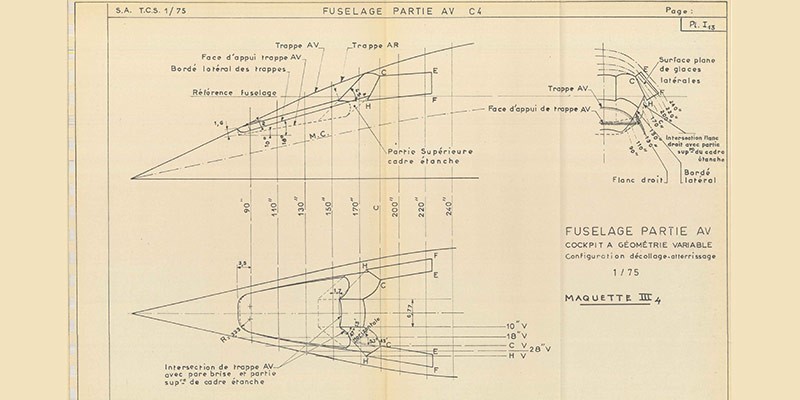 S.A. T.C.S. 1/75
FUSELAGE PARTIE AV C4
Page:
Pl. I 13
Trappe AV
Trappe AR
Face d'appui trappe AV
Bordé latéral des trappes
Référence fuselage
C
E
F
H
1,6
10"
18"
M.C.
Partie Supérieure
cadre étanche
90"
110"
130"
150"
170"
C
200"
220"
240"
Surface plane
de glaces
latérales
Trappe AV
Face d'appui de trappe AV
C
E
F
H
240"
220"
200"
C
170"
150"
130"
110"
90"
Intersection flanc
droit avec partie
supre du cadre
étanche
Flanc droit
Bordé
latéral
FUSELAGE PARTIE AV
COCKPIT A GÉOMÉTRIE VARIABLE
Configuration décollage-atterrissage
1/75
MAQUETTE III 4
3,5
F
H
E
C
6,77
C
E
H
F
10" V
18" V
C V
28" V
H V
Intersection de trappe AV
avec pare brise et partie
supre de cadre étanche